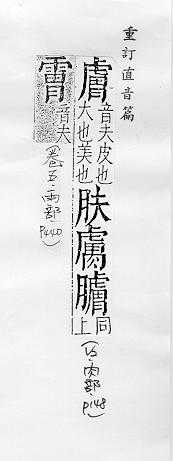 重訂直音篇
膚
音夫皮也
大也美也
肤
同
上
肉部.P148)
音夫
(卷五.雨部
P440)